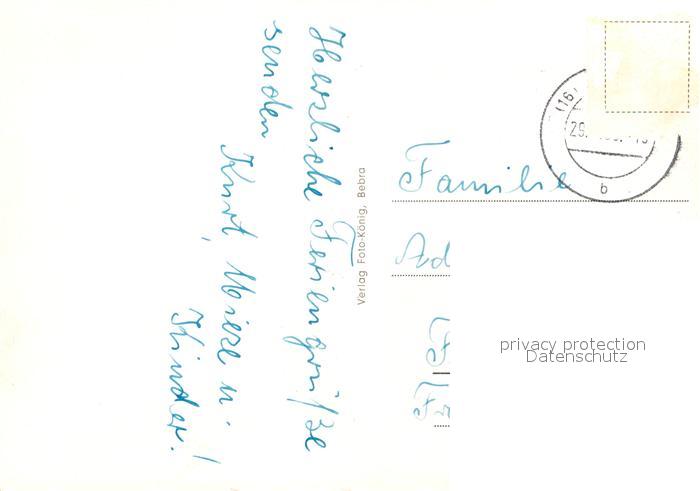 Herzliche Feriengrüße
senden
Kurt, Mieze u.
Kinder!
Verlag Foto-König, Bebra
Familie
Ad
(16)
29.
b
privacy protection
Datenschutz